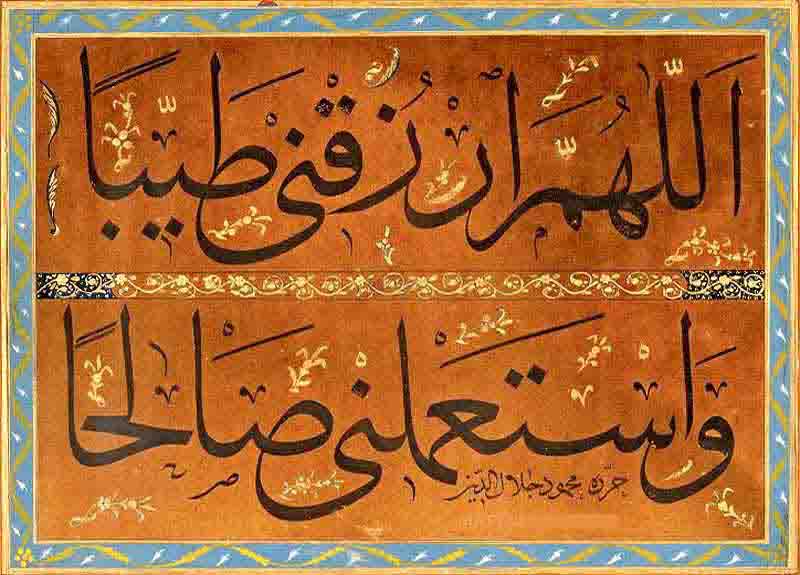 اَللّٰهُمَّ ارْزُقْنِى طَيِّبًا
وَاسْتَعْمِلْنِى صَالِحًا
حرّره محمود جلال الدّين